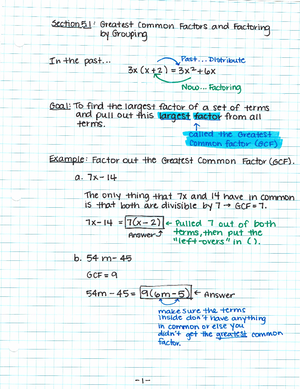 Section 5.1: Greatest Common Factors and Factoring
by Grouping
In the past...
Past... Distribute
3x(x+2) = 3x²+6x
Now... Factoring
Goal: To find the largest factor of a set of terms
and pull out this largest factor from all
terms.
called the Greatest
Common Factor (GCF)
Example: Factor out the Greatest Common Factor (GCF).
a. 7x-14
The only thing that 7x and 14 have in common
is that both are divisible by 7 → GCF = 7.
7x-14 = 7(x-2) ← Pulled 7 out of both
Answer terms, then put the
"left-overs" in ().
b. 54m-45
GCF = 9
54m-45 = 9(6m-5) ← Answer
make sure the terms
inside don't have anything
in common or else you
didn't get the greatest common
factor.
-1-